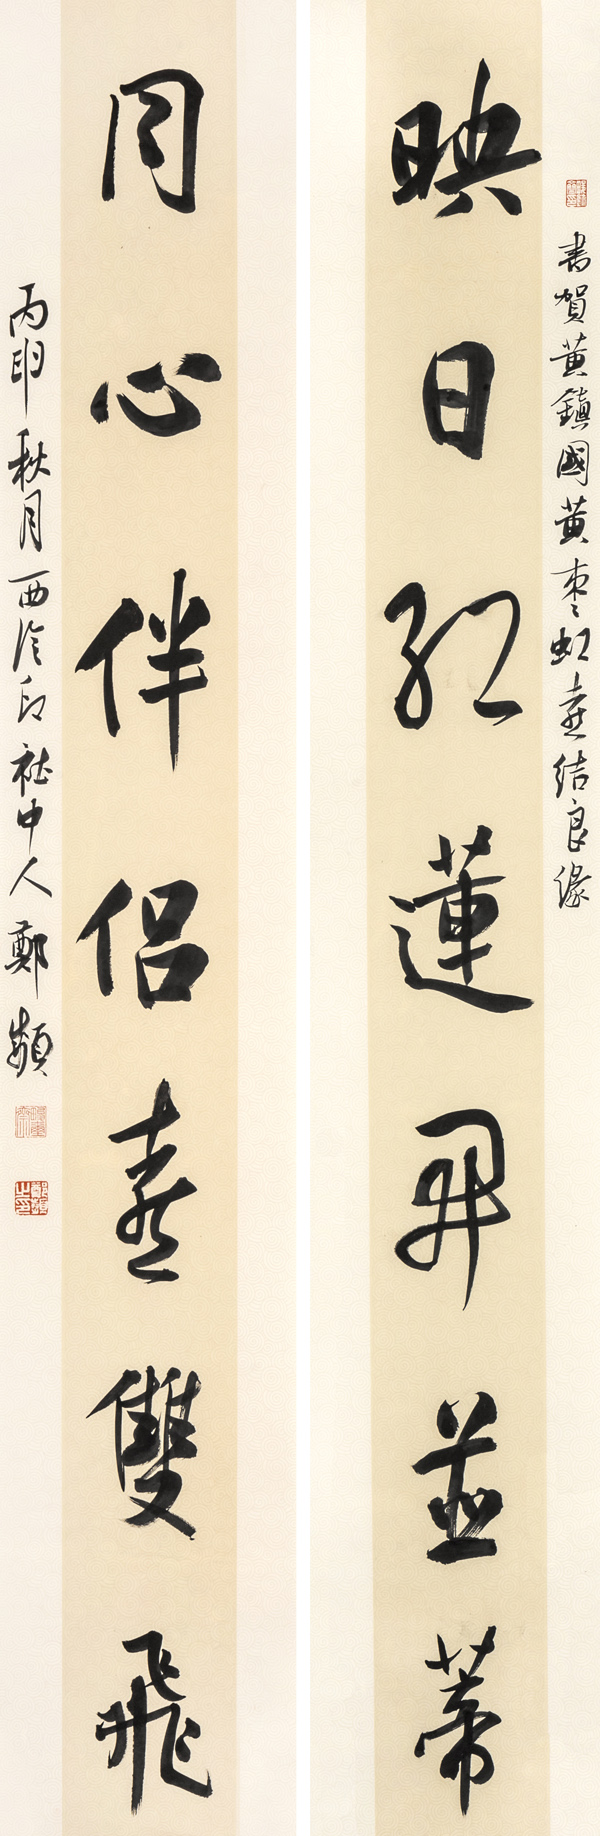 書賀黄鎮國黄枣虹喜結良缘
映日紅蓮開並蒂
同心伴侣喜雙飛
丙申秋月西泠印社中人鄭頻